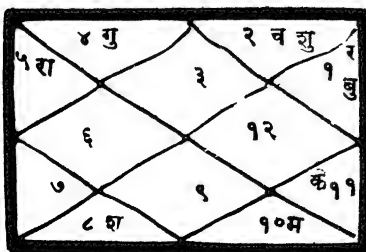 ४ गु २ च शु
५ रा ३ १ र बु
६ १२
७ ९ के ११
८ श १० म